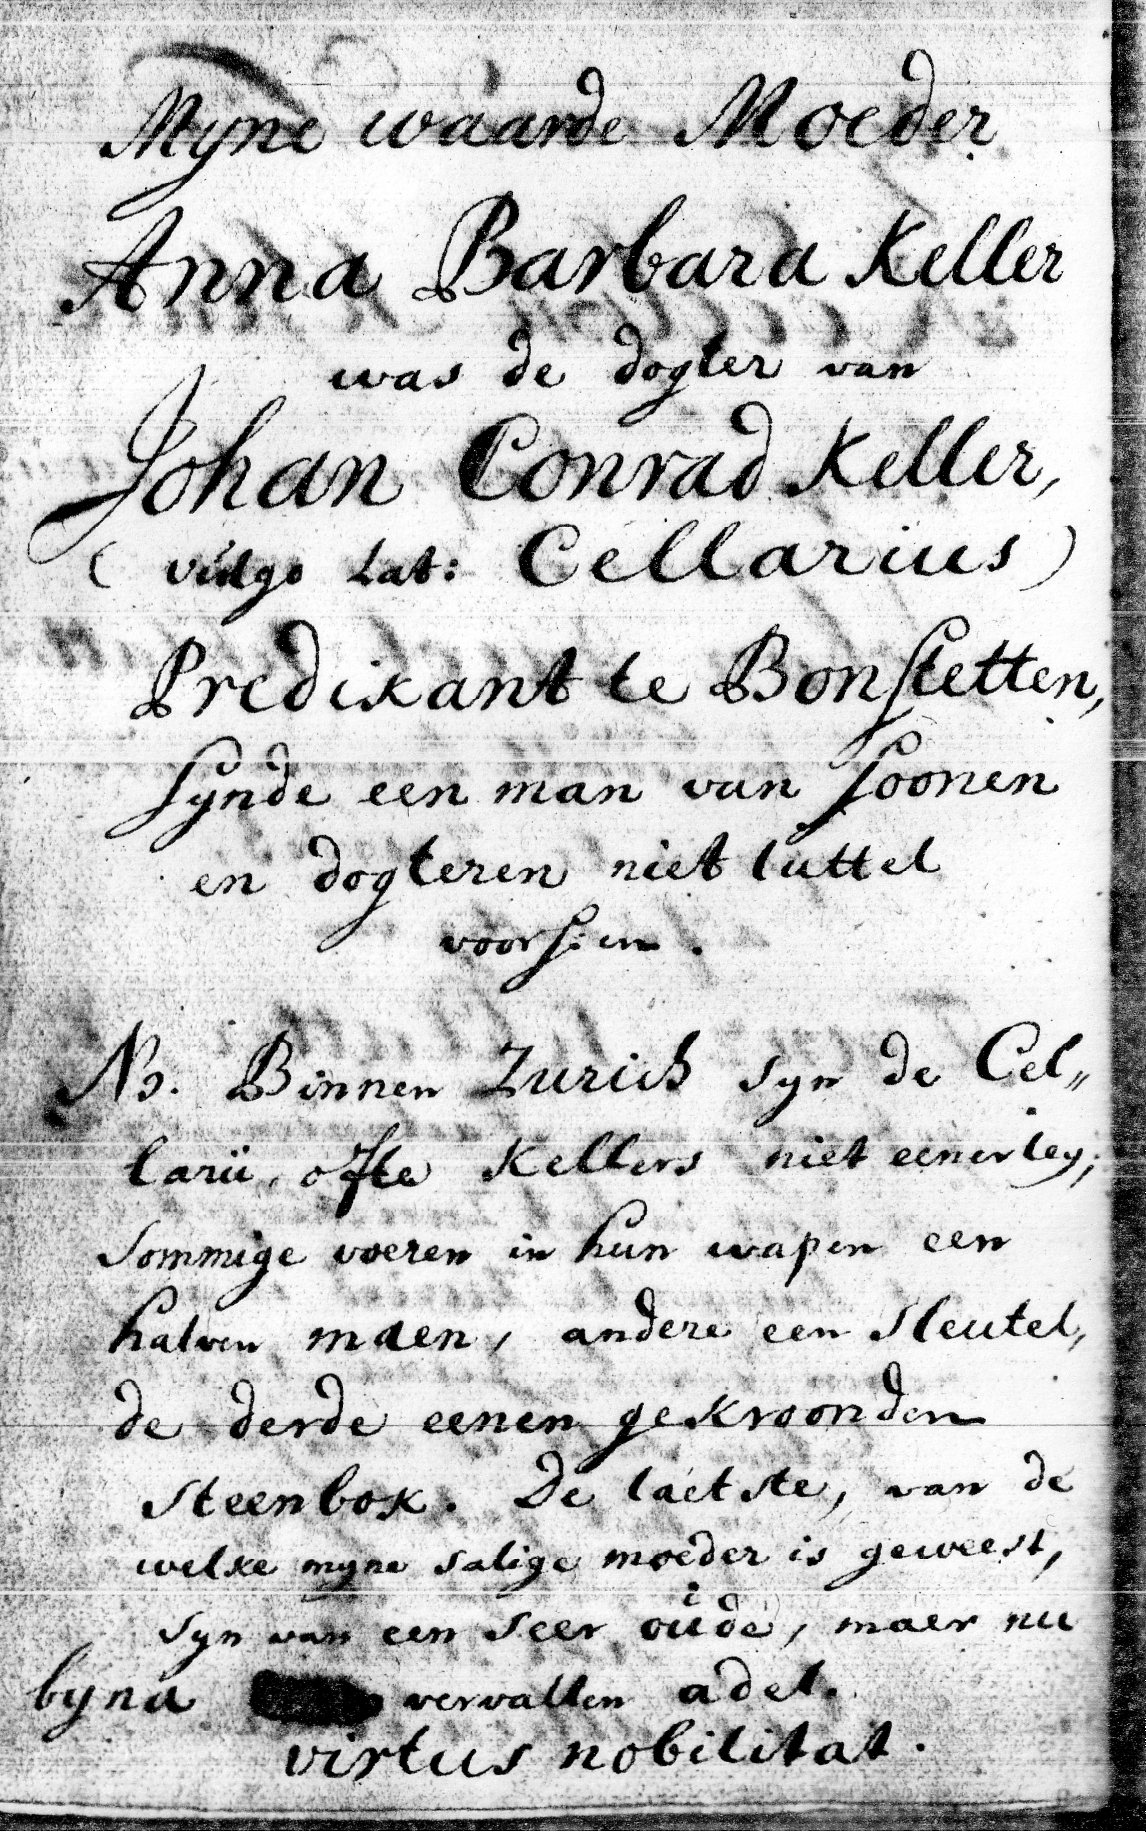 Myne waarde Moeder
Anna Barbara Keller
was de dogter van
Johan Conrad Keller,
(vulgo Lat: Cellarius)
Predikant te Bonstetten,
synde een man van soonen
en dogteren niet luttel
voorsien.
NB. Binnen Zurich syn de Cel„
larii, ofte Kellers niet eenerley;
sommige voeren in hun wapen een
halven maen, andere een sleutel,
de derde eenen gekroonden
steenbok. De laetste, van de
welke myne salige moeder is geweest,
syn van een seer oude, maer nu
byna vervallen adel.
virtus nobilitat.